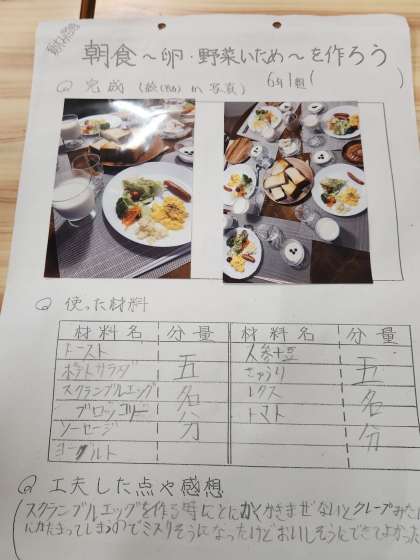 朝食〜卵・野菜いため〜を作ろう
6年1組(　　　)
完成 (絵 or 写真)
使った材料
材料名 分量 材料名 分量
トースト 五名分 五名分
ポテトサラダ きゅうり
スクランブルエッグ レタス
ブロッコリー トマト
ソーセージ
ヨーグルト
工夫した点や感想
スクランブルエッグを作る時にとにかくかきまぜないとクレープみたい
にかたまってしまうのでミスりそうになったけどおいしそうにできてよかった